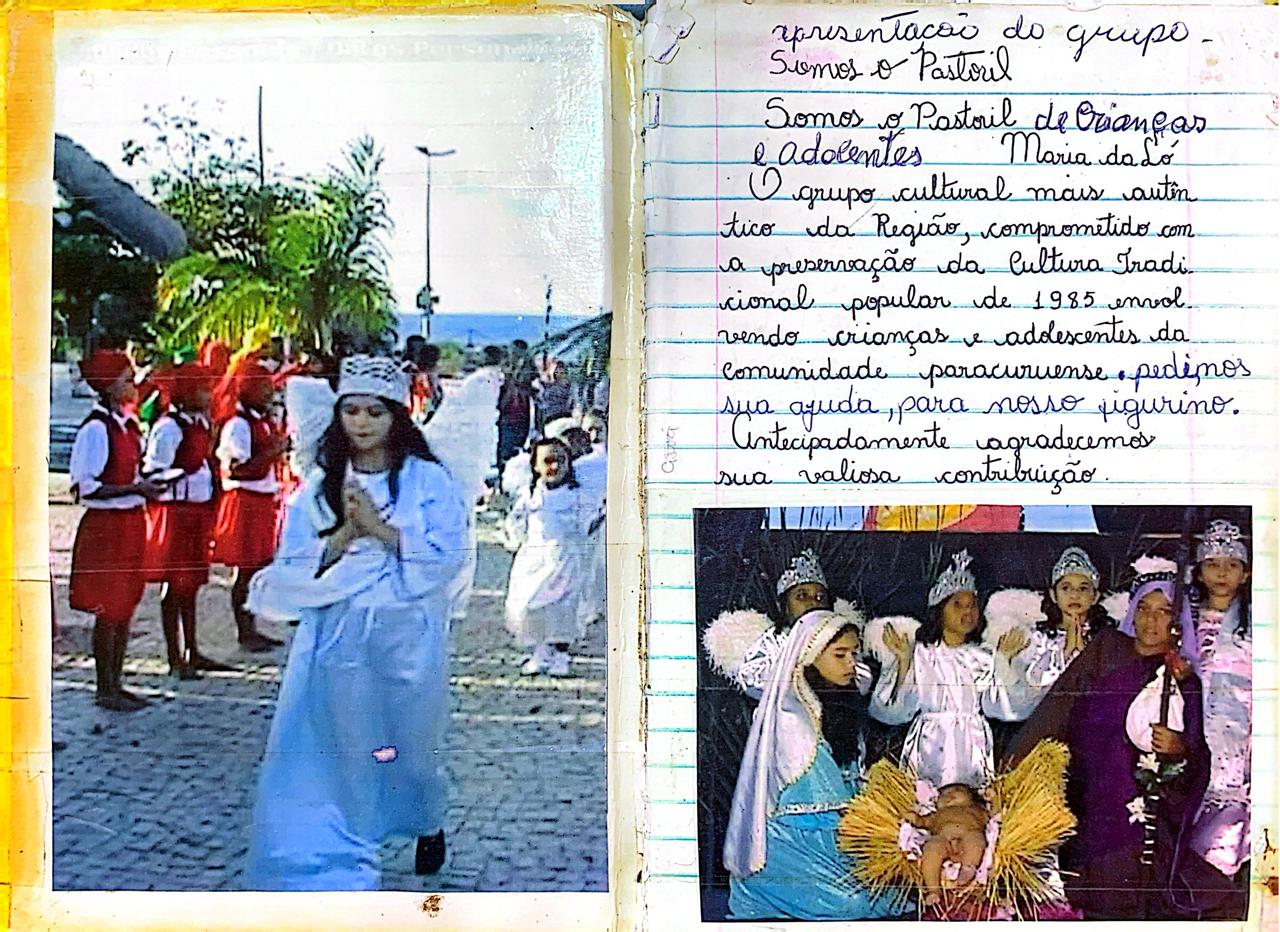 apresentação do grupo -
Somos o Pastoril
Somos o Pastoril de Crianças
e Adolentes Maria da Ló
O grupo cultural mais autên
tico da Região, comprometido com
a preservação da Cultura Tradi-
cional popular de 1985 envol-
vendo crianças e adolescentes da
comunidade paracuruense. pedimos
sua ajuda, para nosso figurino.
Antecipadamente agradecemos
sua valiosa contribuição.